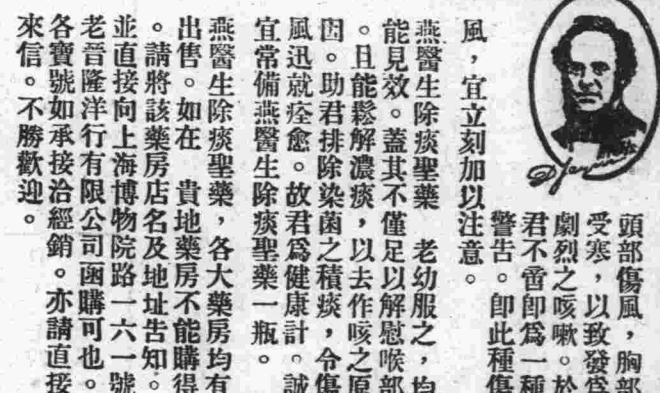 頭部傷風，胸部
受寒，以致發爲
劇烈之咳嗽。於
君不啻卽爲一種
警告。卽此種傷
風，宜立刻加以注意。
燕醫生除痰聖藥　老幼服之，均
能見效。蓋其不僅足以解慰喉部
。且能鬆解濃痰，以去作咳之原
因。助君排除染菌之積痰，令傷
風迅就痊愈。故君爲健康計。誠
宜常備燕醫生除痰聖藥一瓶。
燕醫生除痰聖藥，各大藥房均有
出售。如在　貴地藥房不能購得
。請將該藥房店名及地址告知。
並直接向上海博物院路一六一號
老晉隆洋行有限公司函購可也。
各寶號如承接洽經銷。亦請直接
來信。不勝歡迎。